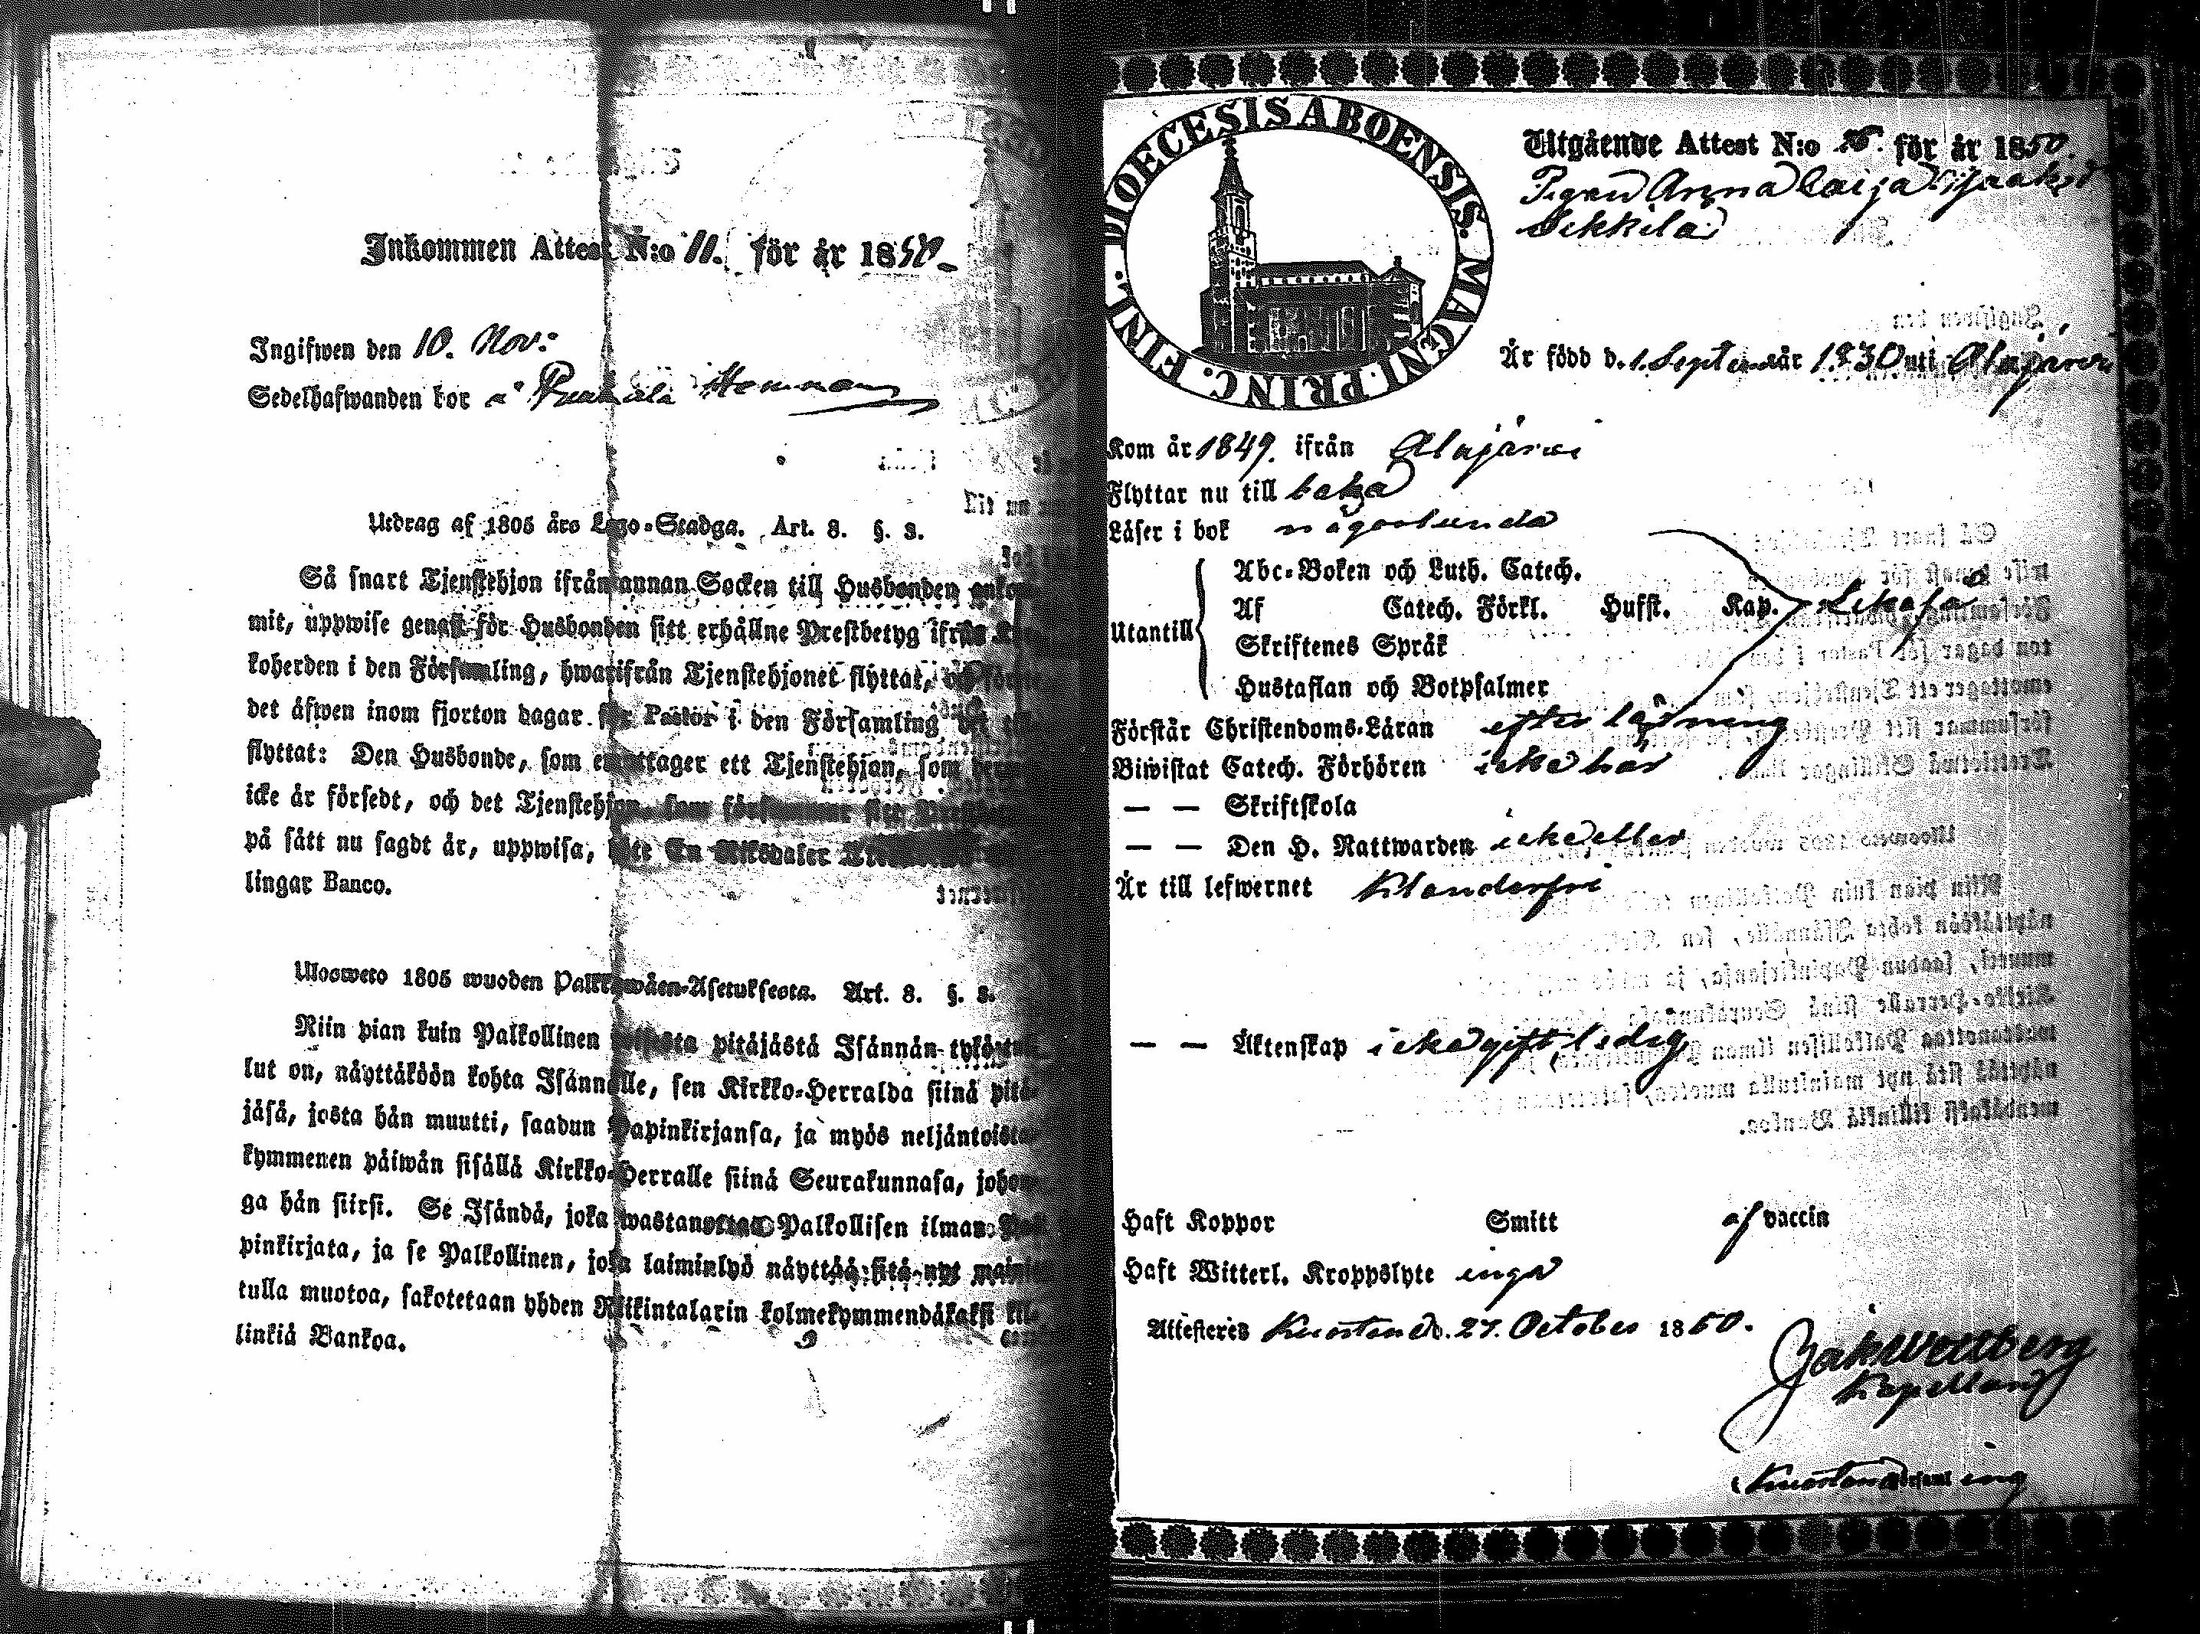 Inkommen Attest N:o 11. för år 1850.
Ingifwen den 10. Nov:
Sedelhafwanden bor å Hemman
Utdrag af 1805 års Lego-Stadga. Art. 8. §. 3.
Så snart Tjenstehjon ifrån annan Socken till Husbonden
mit, uppwise genast för Husbonden sitt erhållne Prestbetyg ifrån
koherden i den Församling, hwarifrån Tjenstehjonet flyttat,
det äfwen inom fjorton dagar för Pastor i den Församling det
flyttat: Den Husbonde, som emottager ett Tjenstehjon, som
icke är försedt, och det Tjenstehjon, som försummar sitt
på sätt nu sagdt är, uppwisa, En Riksdaler
lingar Banco.
Uloswero 1805 wuoden Palkkawäen-Asetuksesta. Art. 8. §. 3.
Niin pian kuin Palkollinen toisesta pitäjästä Isännän tykö
lut on, näyttäköön kohta Isännälle, sen Kirkko-Herralda siinä pitä-
jäsä, josta hän muutti, saadun Papinkirjansa, ja myös neljäntoista-
kymmenen päiwän sisällä Kirkko-Herralle siinä Seurakunnasa, johon-
ga hän siirsi. Se Isändä, joka wastanottaa Palkollisen ilman Pa-
pinkirjata, ja se Palkollinen, joka laiminlyö näyttää sitä nyt mainit-
tulla muotoa, sakotetaan yhden Riikintalarin kolmekymmendäkaksi kil-
linkiä Bankoa.
DIOECESIS ABOENSIS. MAGNI. PRINC. FINL.
Utgående Attest N:o för år 1850.
Pigan Anna Caisa Isaaksd
Sekkilä
Är född d. 1. September år 1830 uti Alajärvi
Kom år 1849. ifrån Alajärvi
Flyttar nu till baka
Läser i bok någorlunda
Abc-Boken och Luth. Catech.
Utantill Af Catech. Förkl. Husst. Kap. Likaså
Skriftenes Språk
Hustaflan och Botpsalmer
Förstår Christendoms-Läran efter läsning
Biwistat Catech. Förhören icke här
— — Skriftskola
— — Den H. Nattwarden icke eller
Är till lefwernet Klanderfri
— — Äktenskap icke gift, ledig
Haft Koppor Smitt af vaccin
Haft Witterl. Kroppslyte inga
Attesteres Kuortane d. 27. October 1850.
Jak Wettberg
Kapellan
Kuortane